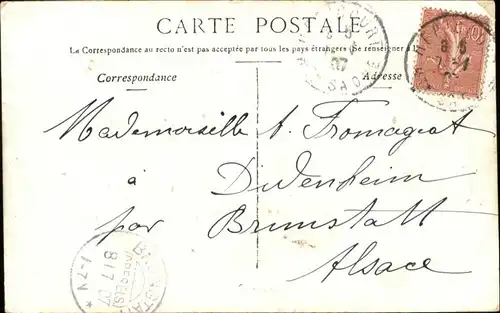 CARTE POSTALE
La Correspondance au recto n'est pas acceptée par tous les pays étrangers (Se renseigner à l
Correspondance
Adresse
Mademoiselle t. Fromageat
à Didenheim
par Brunstatt
Alsace
07
SAONE
10
8 17 07
(OBERELS)
1-2N